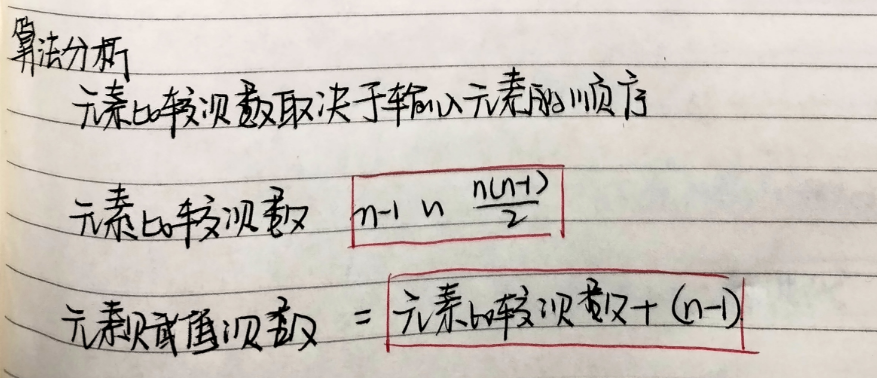 算法分析
元素比较次数取决于输入元素的顺序
元素比较次数 n-1 ~ n(n-1)/2
元素赋值次数 = 元素比较次数 + (n-1)